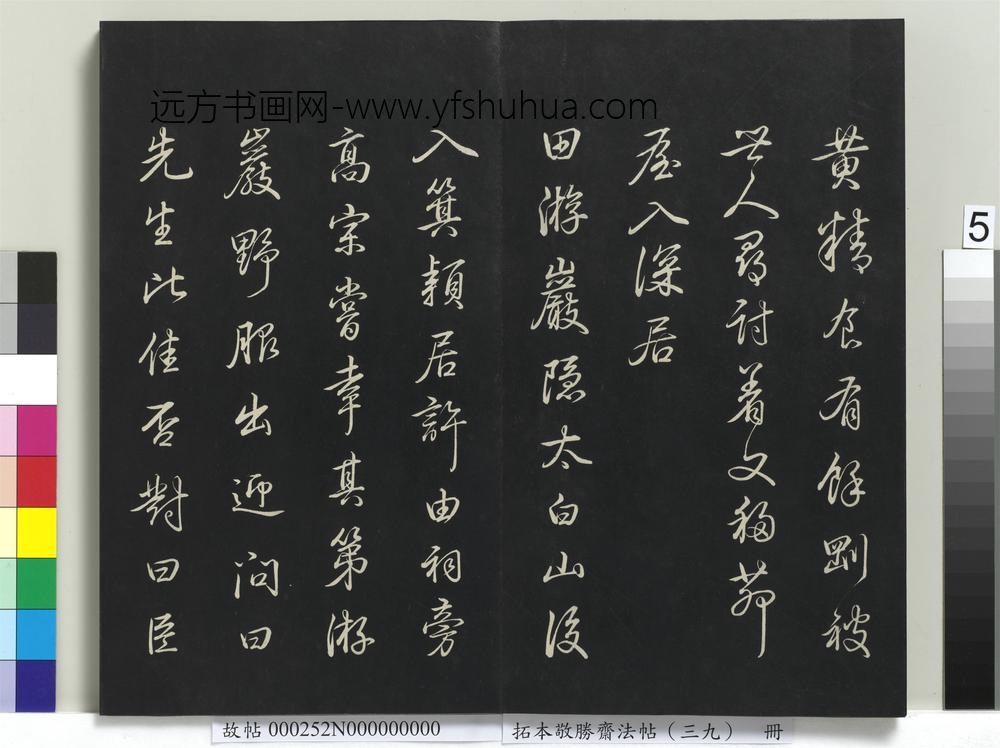 远方书画网-www.yfshuhua.com
黄精食有餘剛被
世人尋討着又移茆
屋入深居
田游巖隐太白山後
入箕潁居許由祠旁
髙宗嘗幸其第游
巖野服出迎问曰
先生比佳否對曰臣
5
故帖 000252N000000000
拓本敬勝齋法帖（三九） 冊